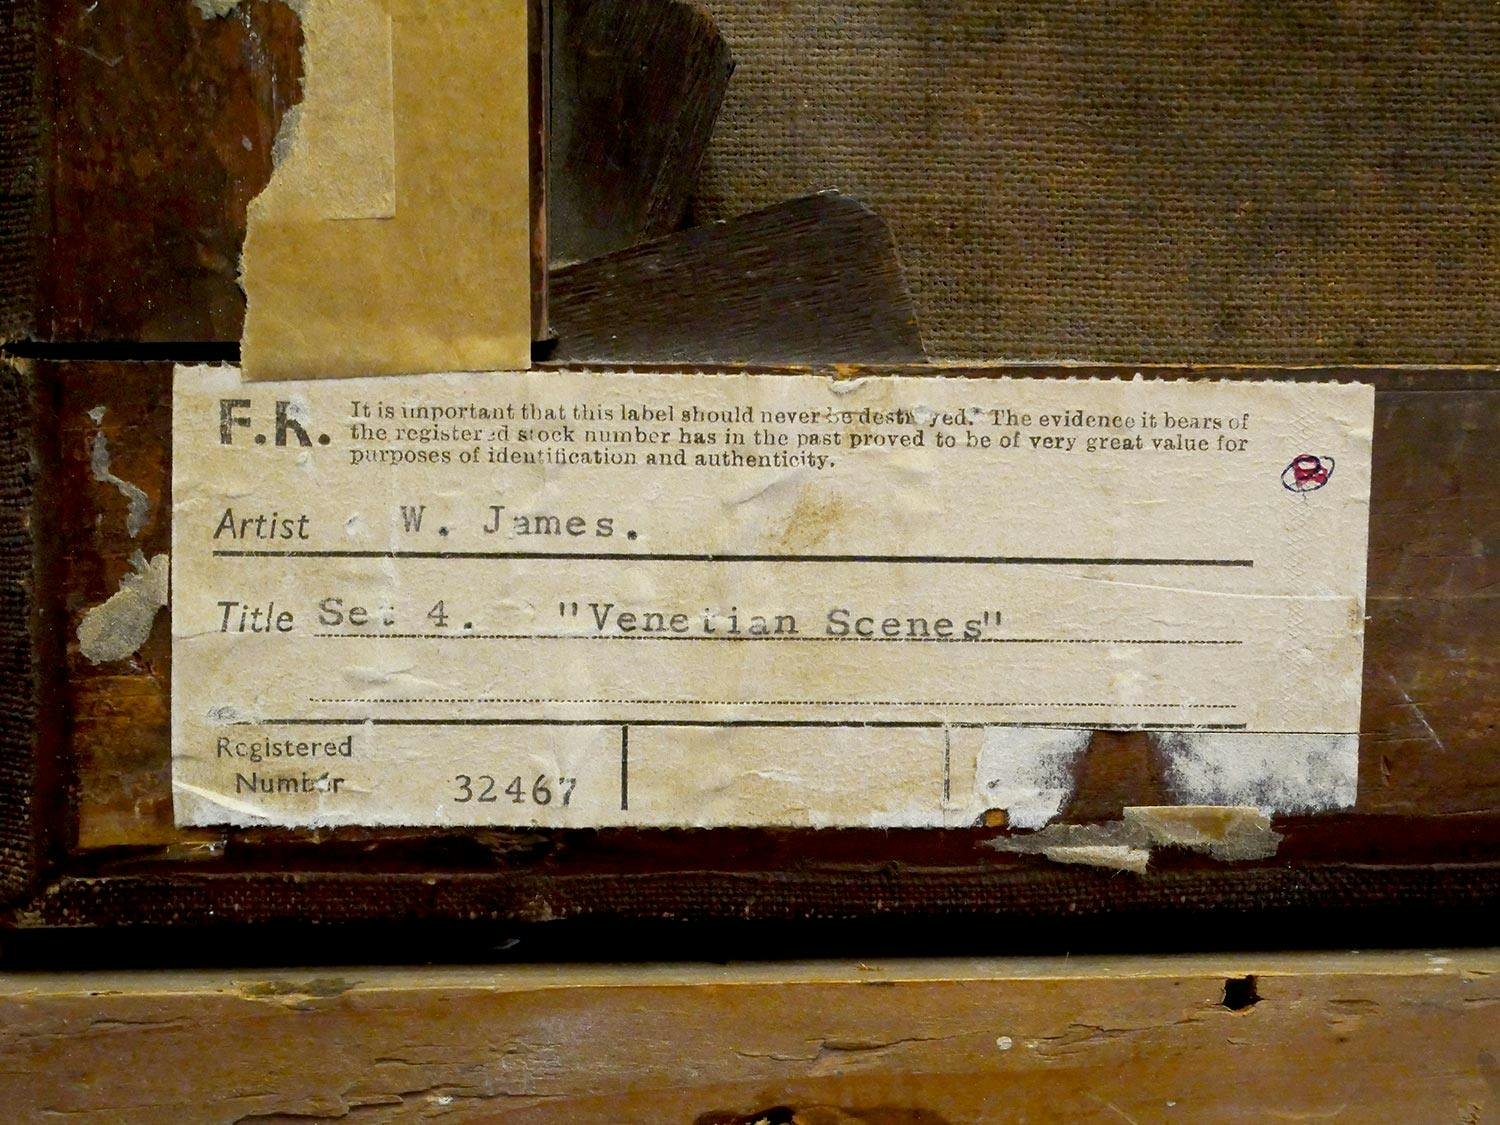 F.R.
It is important that this label should never be destroyed. The evidence it bears of
the registered stock number has in the past proved to be of very great value for
purposes of identification and authenticity.
Artist W. James.
Title Set 4. "Venetian Scenes"
Registered
Number 32467